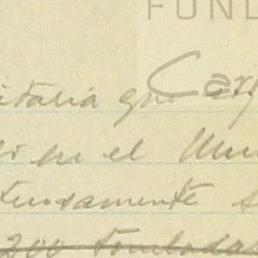 FUND
Car
itaria que
en el Mun
tuosamente
200 toneladas